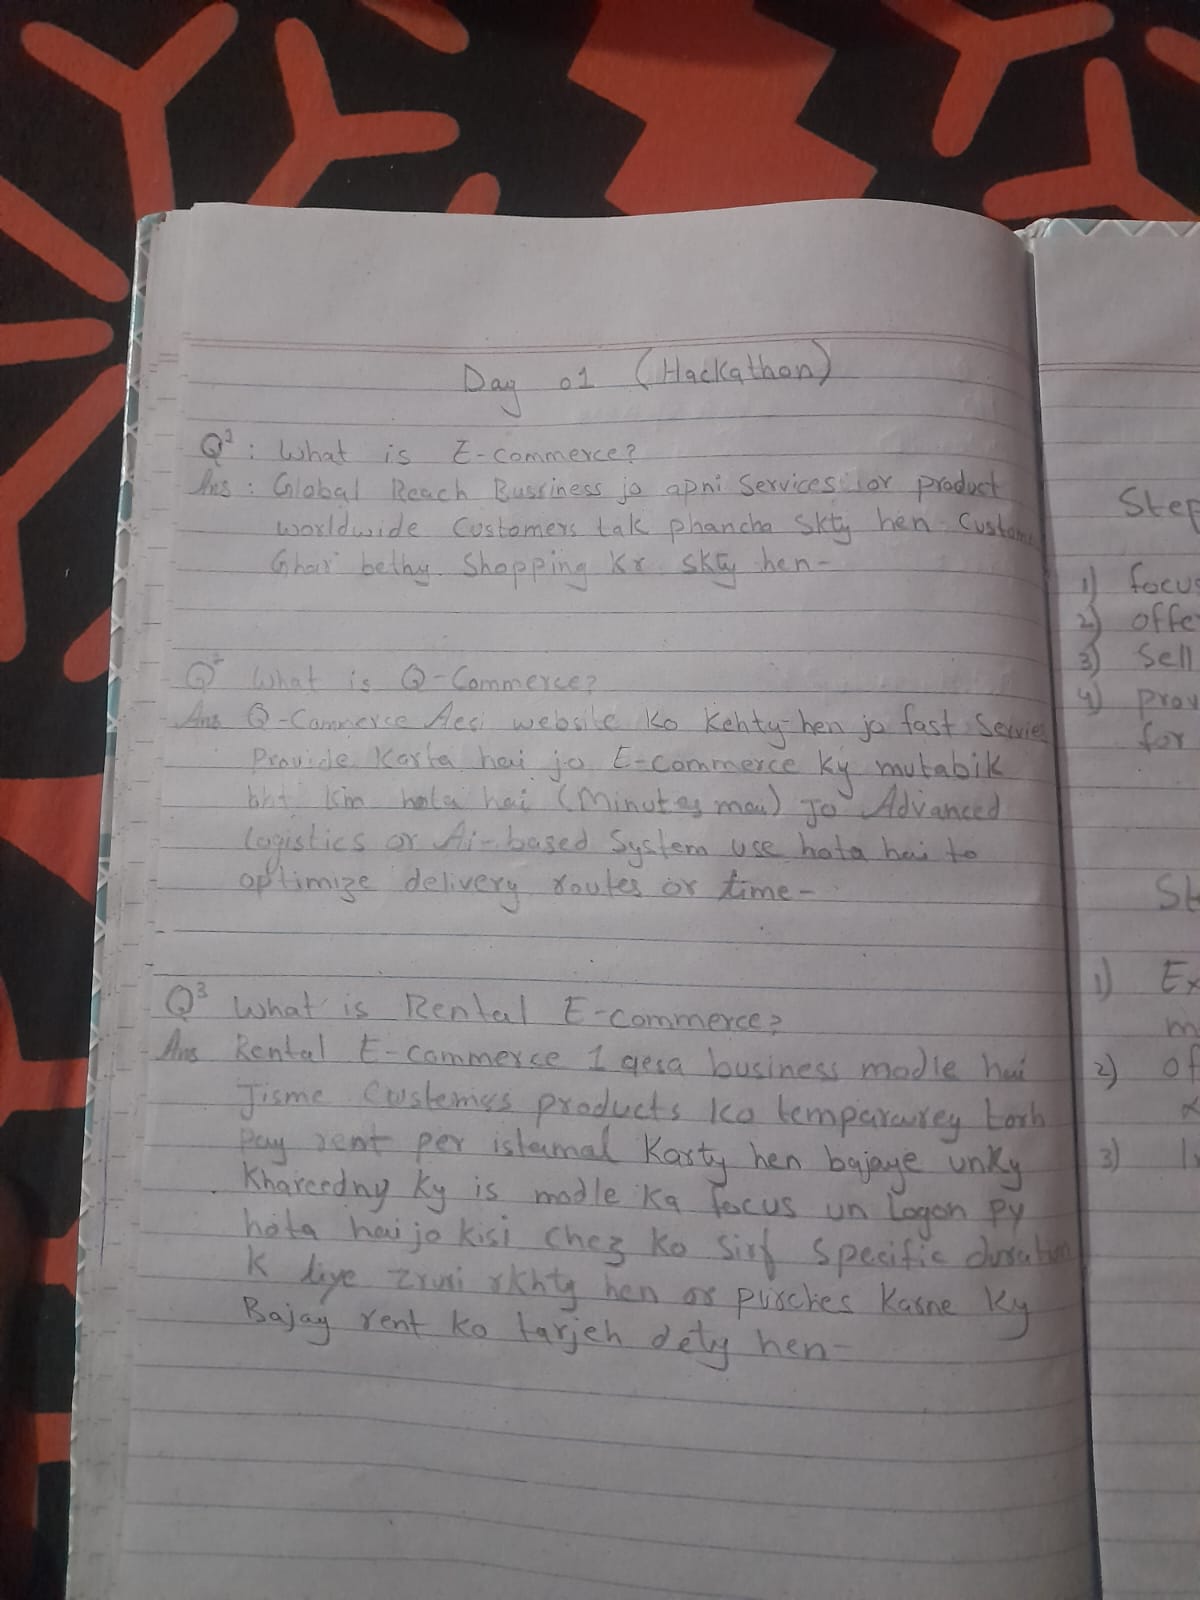 Day 01 (Hackathon)
Q1: What is E-commerce?
Ans: Global Reach Bussiness jo apni Services or product
worldwide Customers tak phancha skty hen Custome
Ghar bethy Shopping Kr skty hen-
Q2 What is Q-Commerce?
Ans Q-Commerce Aesi website ko Kehty hen jo fast Servie
Provide Karta hai jo E-commerce Ky mutabik
bht Kim hota hai (Minutes mau) Jo Advanced
Logistics or Ai-based System use hota hai to
optimize delivery routes or time-
Q3 What is Rental E-commerce?
Ans Rental E-commerce 1 aesa business modle hai
Jisme Custemers products Ko temparavrey torh
pay rent per istamal Karty hen bajaye unky
Khareedny Ky is modle Ka focus un Logon py
hota hai jo kisi Chez Ko Sirf Specific duration
K liye zruri rkhty hen or purches Karne Ky
Bajay rent ko tarjeh dety hen-
Step
1) focus
2) offe
3) Sell
4) prov
for
St
1) Ex
m
2) of
3)